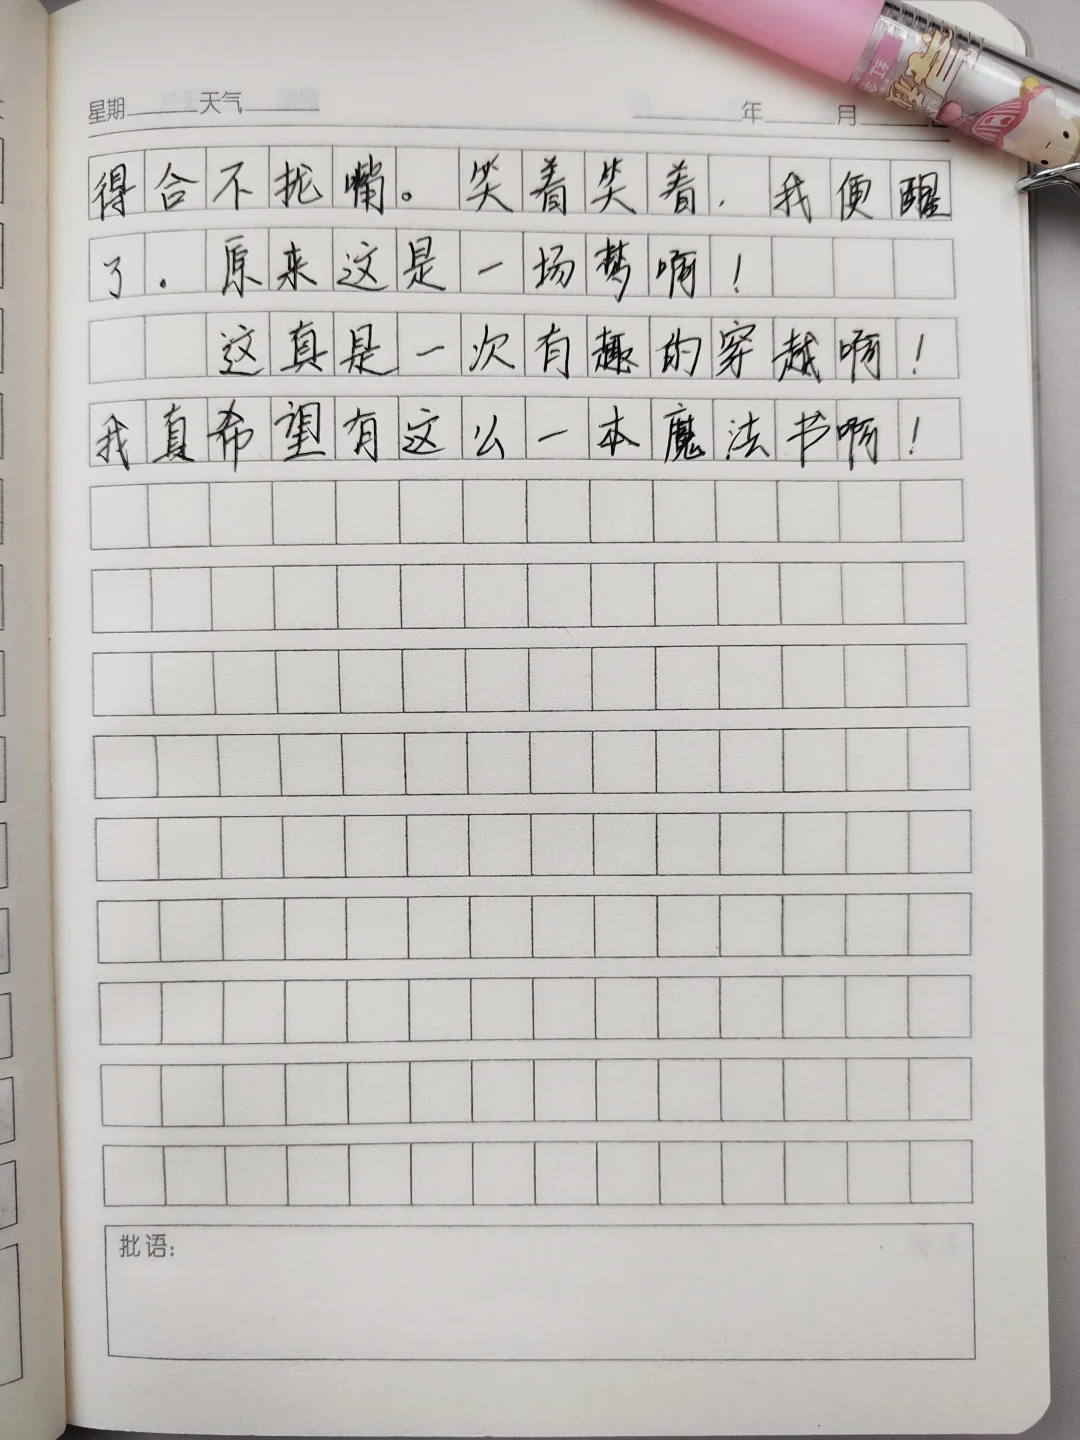 星期 天气 年 月
得合不拢嘴。笑着笑着，我便醒
了。原来这是一场梦啊！
这真是一次有趣的穿越啊！
我真希望有这么一本魔法书啊！
批语：